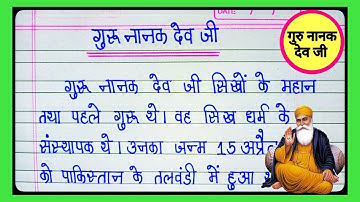 DATE
गुरु नानक देव जी
गुरु नानक
देव जी
गुरु नानक देव जी सिखों के महान
तथा पहले गुरु थे। वह सिख धर्म के
संस्थापक थे। उनका जन्म 15
को पाकिस्तान के तलवंडी में हुआ